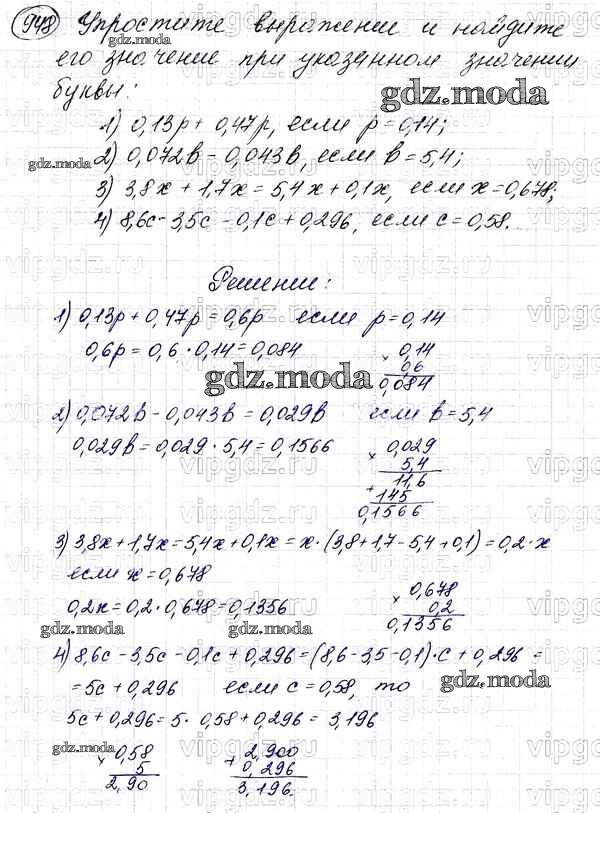 948 Упростите выражение и найдите
его значение при указанном значении
буквы:
1) 0,13p + 0,47p, если p = 0,14;
2) 0,072b - 0,043b, если b = 5,4;
3) 3,8x + 1,7x = 5,4x + 0,1x, если x = 0,678;
4) 8,6c - 3,5c - 0,1c + 0,296, если c = 0,58.
Решение:
1) 0,13p + 0,47p = 0,6p если p = 0,14
0,6p = 0,6 · 0,14 = 0,084
× 0,14
0,6
0,084
2) 0,072b - 0,043b = 0,029b если b = 5,4
0,029b = 0,029 · 5,4 = 0,1566
× 0,029
5,4
11,6
+ 145
0,1566
3) 3,8x + 1,7x = 5,4x + 0,1x = x · (3,8 + 1,7 - 5,4 + 0,1) = 0,2 · x
если x = 0,678
0,2x = 0,2 · 0,678 = 0,1356
× 0,678
0,2
0,1356
4) 8,6c - 3,5c - 0,1c + 0,296 = (8,6 - 3,5 - 0,1) · c + 0,296 =
= 5c + 0,296 если c = 0,58, то
5c + 0,296 = 5 · 0,58 + 0,296 = 3,196
× 0,58
5
2,90
+ 2,900
0,296
3,196.
gdz.moda
vipgdz.ru